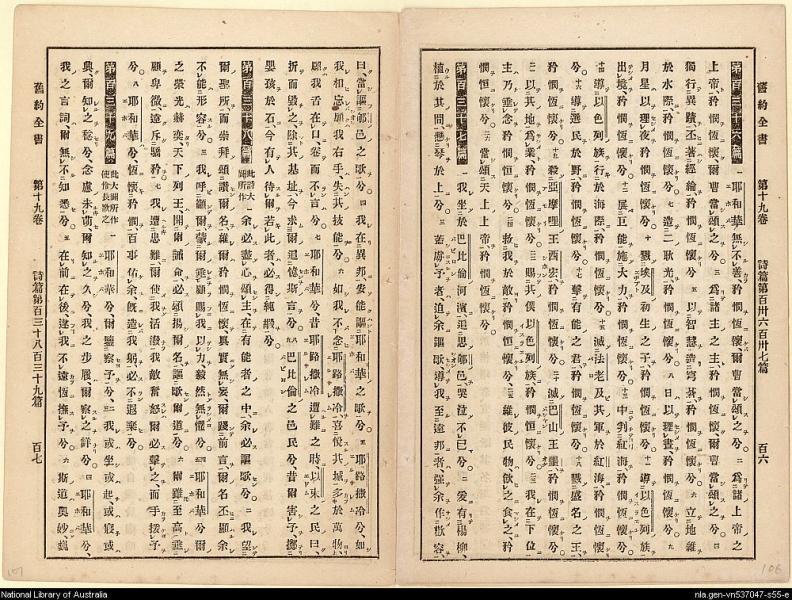 舊約全書 第十九卷 詩篇第百卅六百卅七篇 百六
第百三十六篇 一 耶和華無不善矜憫恆懷、爾曹當頌之兮 二 爲諸上帝之
上帝、矜憫恆懷、爾曹當頌之兮 三 爲諸主之主、矜憫恆懷爾曹當頌之兮 四
獨行異蹟丕著經綸、矜憫恆懷兮 五 以智慧造穹蒼、矜憫恆懷兮 六 立地維
於水際、矜憫恆懷兮 七 造二耿光矜憫恆懷兮 八 日以理晝、矜憫恆懷兮 九
月星以理夜、矜憫恆懷兮 十 戮埃及初生之子、矜憫恆懷兮 十一 導以色列族
出境、矜憫恆懷兮 十二 展巨能施大力、矜憫恆懷兮 十三 中判紅海矜憫恆懷兮
十四 導以色列族行於海際、矜憫恆懷兮 十五 滅法老及其軍於紅海矜憫恆懷
兮 十六 導選民於野、矜憫恆懷兮 十七 擊有能之君、矜憫恆懷兮 十八 戮盛名之王、
矜憫恆懷兮 十九 殺亞摩哩王西宏矜憫恆懷兮 二十 滅巴山王噩、矜憫恆懷兮
二一 以其地爲業、矜憫恆懷兮 二二 賜其僕以色列族、矜憫恆懷兮 二三 我在下位、
主乃垂念、矜憫恆懷兮 二四 救我於敵、矜憫恆懷兮 二五 維彼民物飮之食之、矜
憫恆懷兮 二六 當頌天上上帝、矜憫恆懷兮
第百三十七篇 一 我坐於巴比倫河濱、追思郇邑、哭泣不已兮 二 爰有楊柳、
植於其間、懸琴於上兮 三 虜予者、迫余謳歌、導我至遠邦者、強余作歡容、
曰、當謳郇邑之歌兮 四 我在異邦、安能謳耶和華之歌兮 五 耶路撒冷兮、如
我相忘、願我右手失其技能兮 六 如我不念耶路撒冷、喜悅其城、多於萬物、
願我舌在口、卷而不言兮 七 耶和華兮、昔耶路撒冷遭難之時、以東之民曰、
折而毀之、除其基址、今求爾追憶斯言兮 八九 巴比倫之邑民兮、昔爾害予、擲
嬰孩於石、今有人待爾若此、此者必得純嘏兮
第百三十八篇 此詩大闢所作 一 余必盡心頌主、在有能者之中、余必謳歌兮 二 我望
爾聖所而崇拜、頌讚爾名、維爾矜憫恆懷、眞實無妄、爾踐前言、爾名丕顯、余
不能形容兮 三 我呼籲爾、蒙爾垂顧、賜我以力、毅然無懼兮 四 耶和華兮、爾
之榮光赫奕、天下列王、聞爾誡命、必頌揚爾名、謳歌爾道兮 六 爾雖至高、垂
顧卑微、遠斥驕矜兮 七 我遭患難、爾使我活潑、我敵奮怒、爾必擊之、而手援予
兮 八 耶和華兮、恆懷矜憫、百事佑余、旣造我躬、必不遐棄兮
第百三十九篇 此大闢所作使伶長歌之 一 耶和華兮、爾鑒察予兮 二 我或坐或起或寢或
興、爾知之稔兮、念慮未萌、爾知之久兮、我之步履、爾察之詳兮 四 耶和華兮、
我之言詞、爾無不知悉兮 五 在前在後、逮我不遠、恆撫予兮 六 斯道奧妙、巍
舊約全書 第十九卷 詩篇第百三十八百三十九篇 百七
107
106
National Library of Australia
nla.gen-vn537047-s55-e